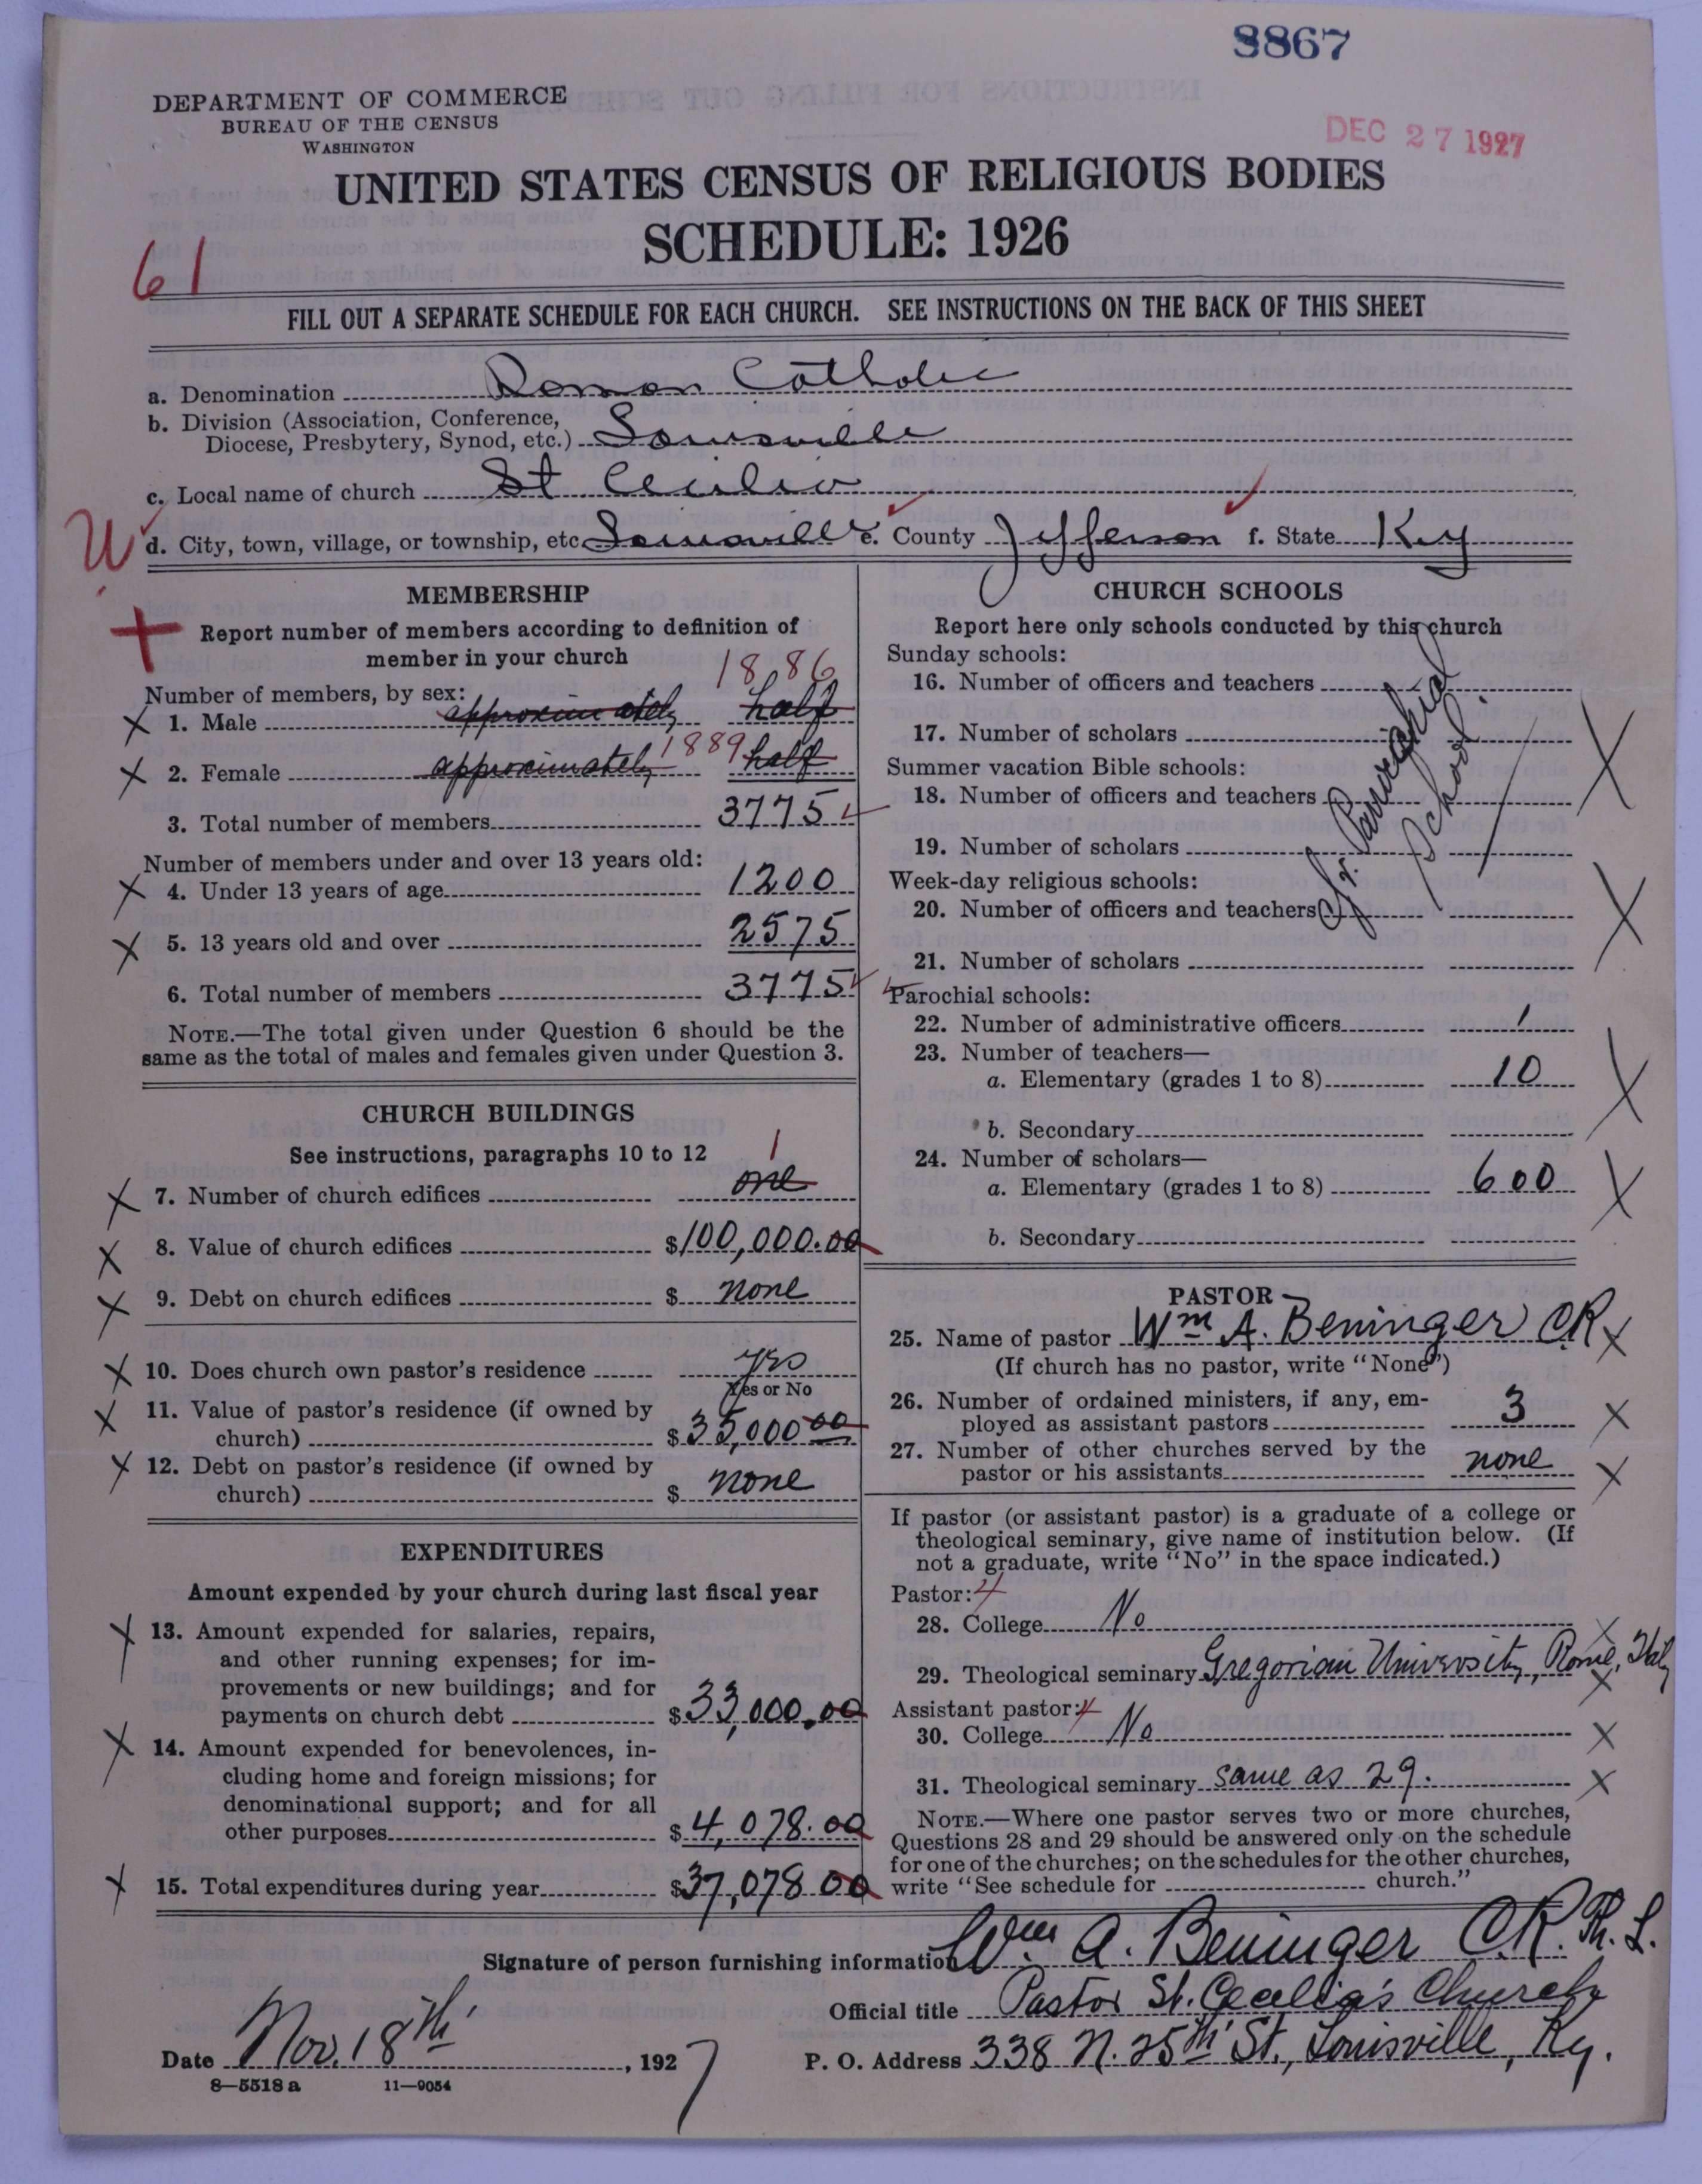 8867
DEPARTMENT OF COMMERCE
BUREAU OF THE CENSUS
WASHINGTON
DEC 27 1927
UNITED STATES CENSUS OF RELIGIOUS BODIES
SCHEDULE: 1926
61
FILL OUT A SEPARATE SCHEDULE FOR EACH CHURCH. SEE INSTRUCTIONS ON THE BACK OF THIS SHEET
a. Denomination Roman Catholic
b. Division (Association, Conference,
Diocese, Presbytery, Synod, etc.) Louisville
c. Local name of church St Cecilia
d. City, town, village, or township, etc. Louisville e. County Jefferson f. State Ky
MEMBERSHIP
Report number of members according to definition of
member in your church
Number of members, by sex: 1886
1. Male approximately half
2. Female approximately 1889 half
3. Total number of members 3775
Number of members under and over 13 years old:
4. Under 13 years of age 1200
5. 13 years old and over 2575
6. Total number of members 3775
NOTE.—The total given under Question 6 should be the
same as the total of males and females given under Question 3.
CHURCH BUILDINGS
See instructions, paragraphs 10 to 12
1
7. Number of church edifices one
8. Value of church edifices $100,000.00
9. Debt on church edifices $ none
10. Does church own pastor's residence yes
Yes or No
11. Value of pastor's residence (if owned by
church) $35,000 00
12. Debt on pastor's residence (if owned by
church) $ none
EXPENDITURES
Amount expended by your church during last fiscal year
13. Amount expended for salaries, repairs,
and other running expenses; for im-
provements or new buildings; and for
payments on church debt $33,000.00
14. Amount expended for benevolences, in-
cluding home and foreign missions; for
denominational support; and for all
other purposes $4,078.00
15. Total expenditures during year $37,078 00
CHURCH SCHOOLS
Report here only schools conducted by this church
Sunday schools:
16. Number of officers and teachers
17. Number of scholars
Summer vacation Bible schools:
18. Number of officers and teachers
19. Number of scholars
Week-day religious schools:
20. Number of officers and teachers
21. Number of scholars
Parochial
School
Parochial schools:
22. Number of administrative officers 1
23. Number of teachers—
a. Elementary (grades 1 to 8) 10
b. Secondary
24. Number of scholars—
a. Elementary (grades 1 to 8) 600
b. Secondary
PASTOR
25. Name of pastor Wm A. Beninger CR
(If church has no pastor, write "None")
26. Number of ordained ministers, if any, em-
ployed as assistant pastors 3
27. Number of other churches served by the
pastor or his assistants none
If pastor (or assistant pastor) is a graduate of a college or
theological seminary, give name of institution below. (If
not a graduate, write "No" in the space indicated.)
Pastor: 4
28. College No
29. Theological seminary Gregorian University, Rome, Italy
Assistant pastor: 4
30. College No
31. Theological seminary same as 29.
NOTE.—Where one pastor serves two or more churches,
Questions 28 and 29 should be answered only on the schedule
for one of the churches; on the schedules for the other churches,
write "See schedule for church."
Signature of person furnishing information Wm A. Beninger C.R. Ph. L.
Official title Pastor St. Cecilia's Church
Date Nov. 18th, 1927 P. O. Address 338 N. 25th St., Louisville, Ky.
8—5518 a 11—9054